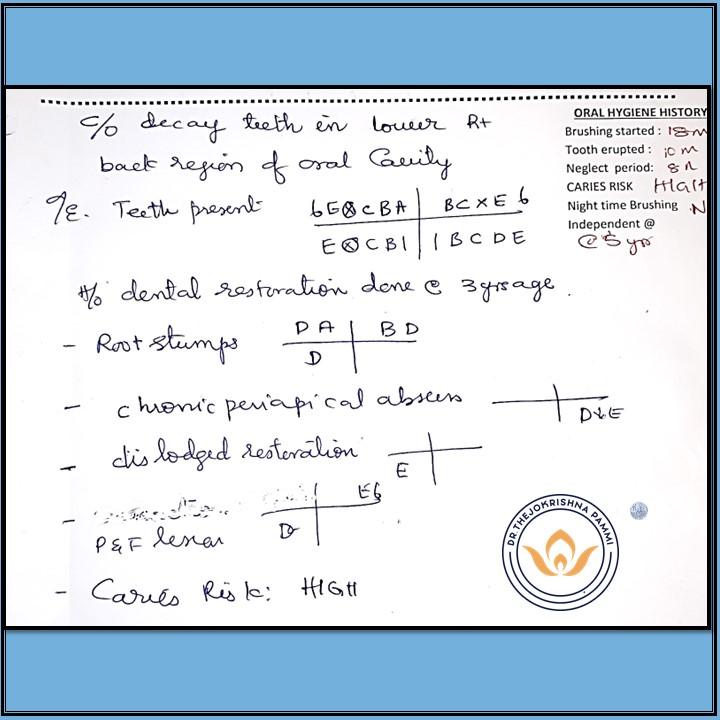 C/o decay teeth in lower Rt
back region of oral Cavity
O/E. Teeth present 6 E D C B A | B C X E 6
E D C B 1 | 1 B C D E
H/o dental restoration done @ 3 yrs age.
- Root stumps D A | B D
D
- chronic periapical abscess D & E
- dislodged restoration E
- E 6
P & F lesion D
- Caries Risk: HIGH
ORAL HYGIENE HISTORY
Brushing started : 18 m
Tooth erupted : 10 m
Neglect period: 8 m
CARIES RISK HIGH
Night time Brushing N
Independent @
@ 5 yrs
DR.THEJOKRISHNA PAMMI